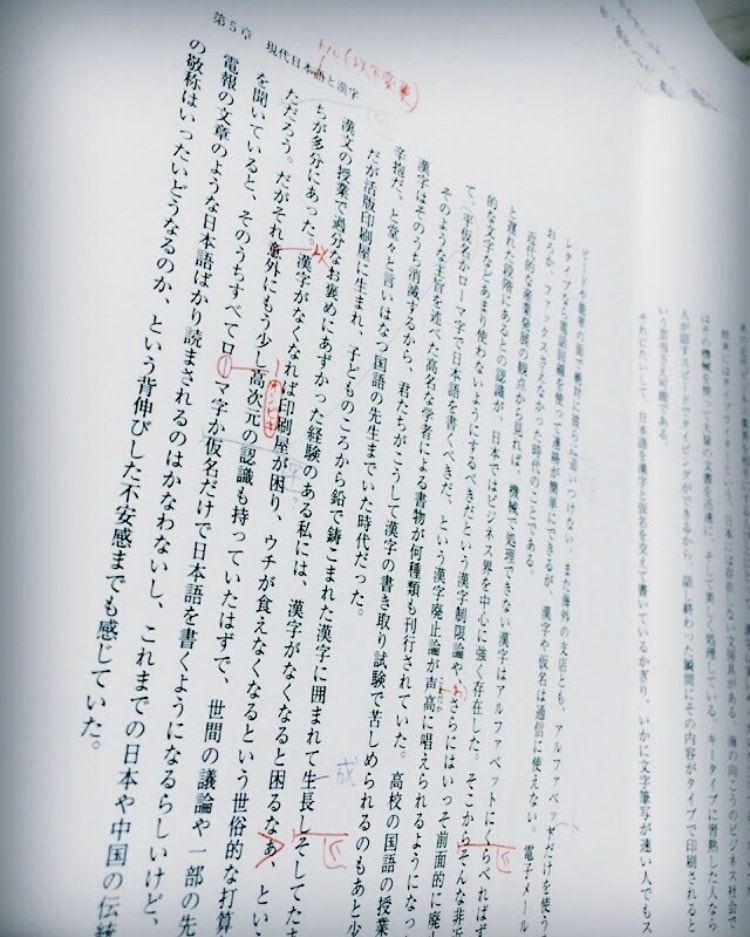 はその機械を使って大量の文書を迅速に、そして美しく処理している。キータイプに習熟した人なら
人が話すスピードでタイピングができるから、話し終わった瞬間にその内容がタイプで印刷されると
いう芸当も可能である。
それにたいして、日本語を漢字と仮名を交えて書いているかぎり、いかに文字筆写が速い人でもス
第5章 現代日本語と漢字
トル(以下変更)
ピードや能率の面で絶対に彼らに追いつけない。また海外の支店とも、アルファベットだけを使う
レタイプなら電話回線を使って連絡が簡単にできるが、漢字や仮名は通信に使えない。電子メール
おろか、ファックスさえなかった時代のことである。
近代的な産業発展の観点から見れば、機械で処理できない漢字はアルファベットにくらべればず
と遅れた段階にあるとの認識が、日本ではビジネス界を中心に強く存在した。そこからそんな非近
的な文字などあまり使わないようにするべきだという漢字制限論や、さらにはいっそ前面的に廃
て、平仮名かローマ字で日本語を書くべきだ、という漢字廃止論が声高に唱えられるようになっ
そのような主旨を述べた高名な学者による書物が何種類も刊行されていた。高校の国語の授業
漢字はそのうち消滅するから、君たちがこうして漢字の書き取り試験で苦しめられるのもあと少
辛抱だ、と堂々と言いはなつ国語の先生までいた時代だった。
だが活版印刷屋に生まれ、子どものころから鉛で鋳こまれた漢字に囲まれて生長しそしてたま
漢文の授業で過分なお褒めにあずかった経験のある私には、漢字がなくなると困るなあ、とい
ちが多分にあった。漢字がなくなれば印刷屋が困り、ウチが食えなくなるという世俗的な打算
ただろう。だがそれ意外にもう少し高次元の認識も持っていたはずで、世間の議論や一部の先
を聞いていると、そのうちすべてローマ字か仮名だけで日本語を書くようになるらしいけど、
電報の文章のような日本語ばかり読まされるのはかなわないし、これまでの日本や中国の伝統
の敬称はいったいどうなるのか、という背伸びした不安感までも感じていた。
以
オンビキ
成